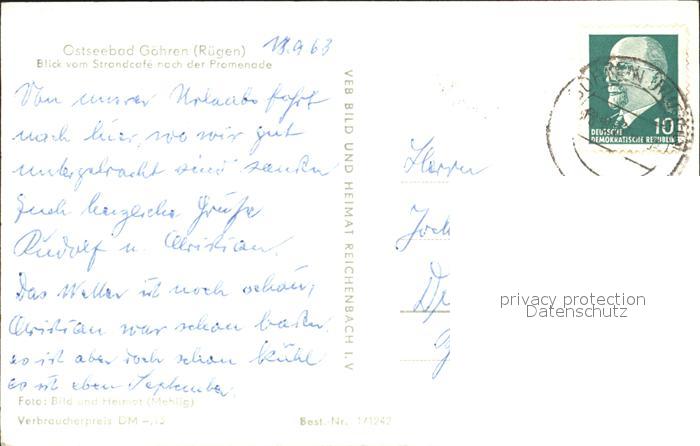 Ostseebad Göhren (Rügen) 13.9.63
Blick vom Strandcafé nach der Promenade
Von unserer Urlaubsfahrt
nach hier, wo wir gut
untergebracht sind senden
Euch herzliche Grüße
Rudolf u. Christian.
Das Wetter ist noch schön,
Christian war schon baden.
es ist aber doch schon kühl
es ist eben September.
Foto: Bild und Heimat (Mehlig)
Verbraucherpreis DM -,15
Best.-Nr. 171242
VEB BILD UND HEIMAT REICHENBACH I. V
10
DEUTSCHE
DEMOKRATISCHE REPUBLIK
Herrn
privacy protection
Datenschutz